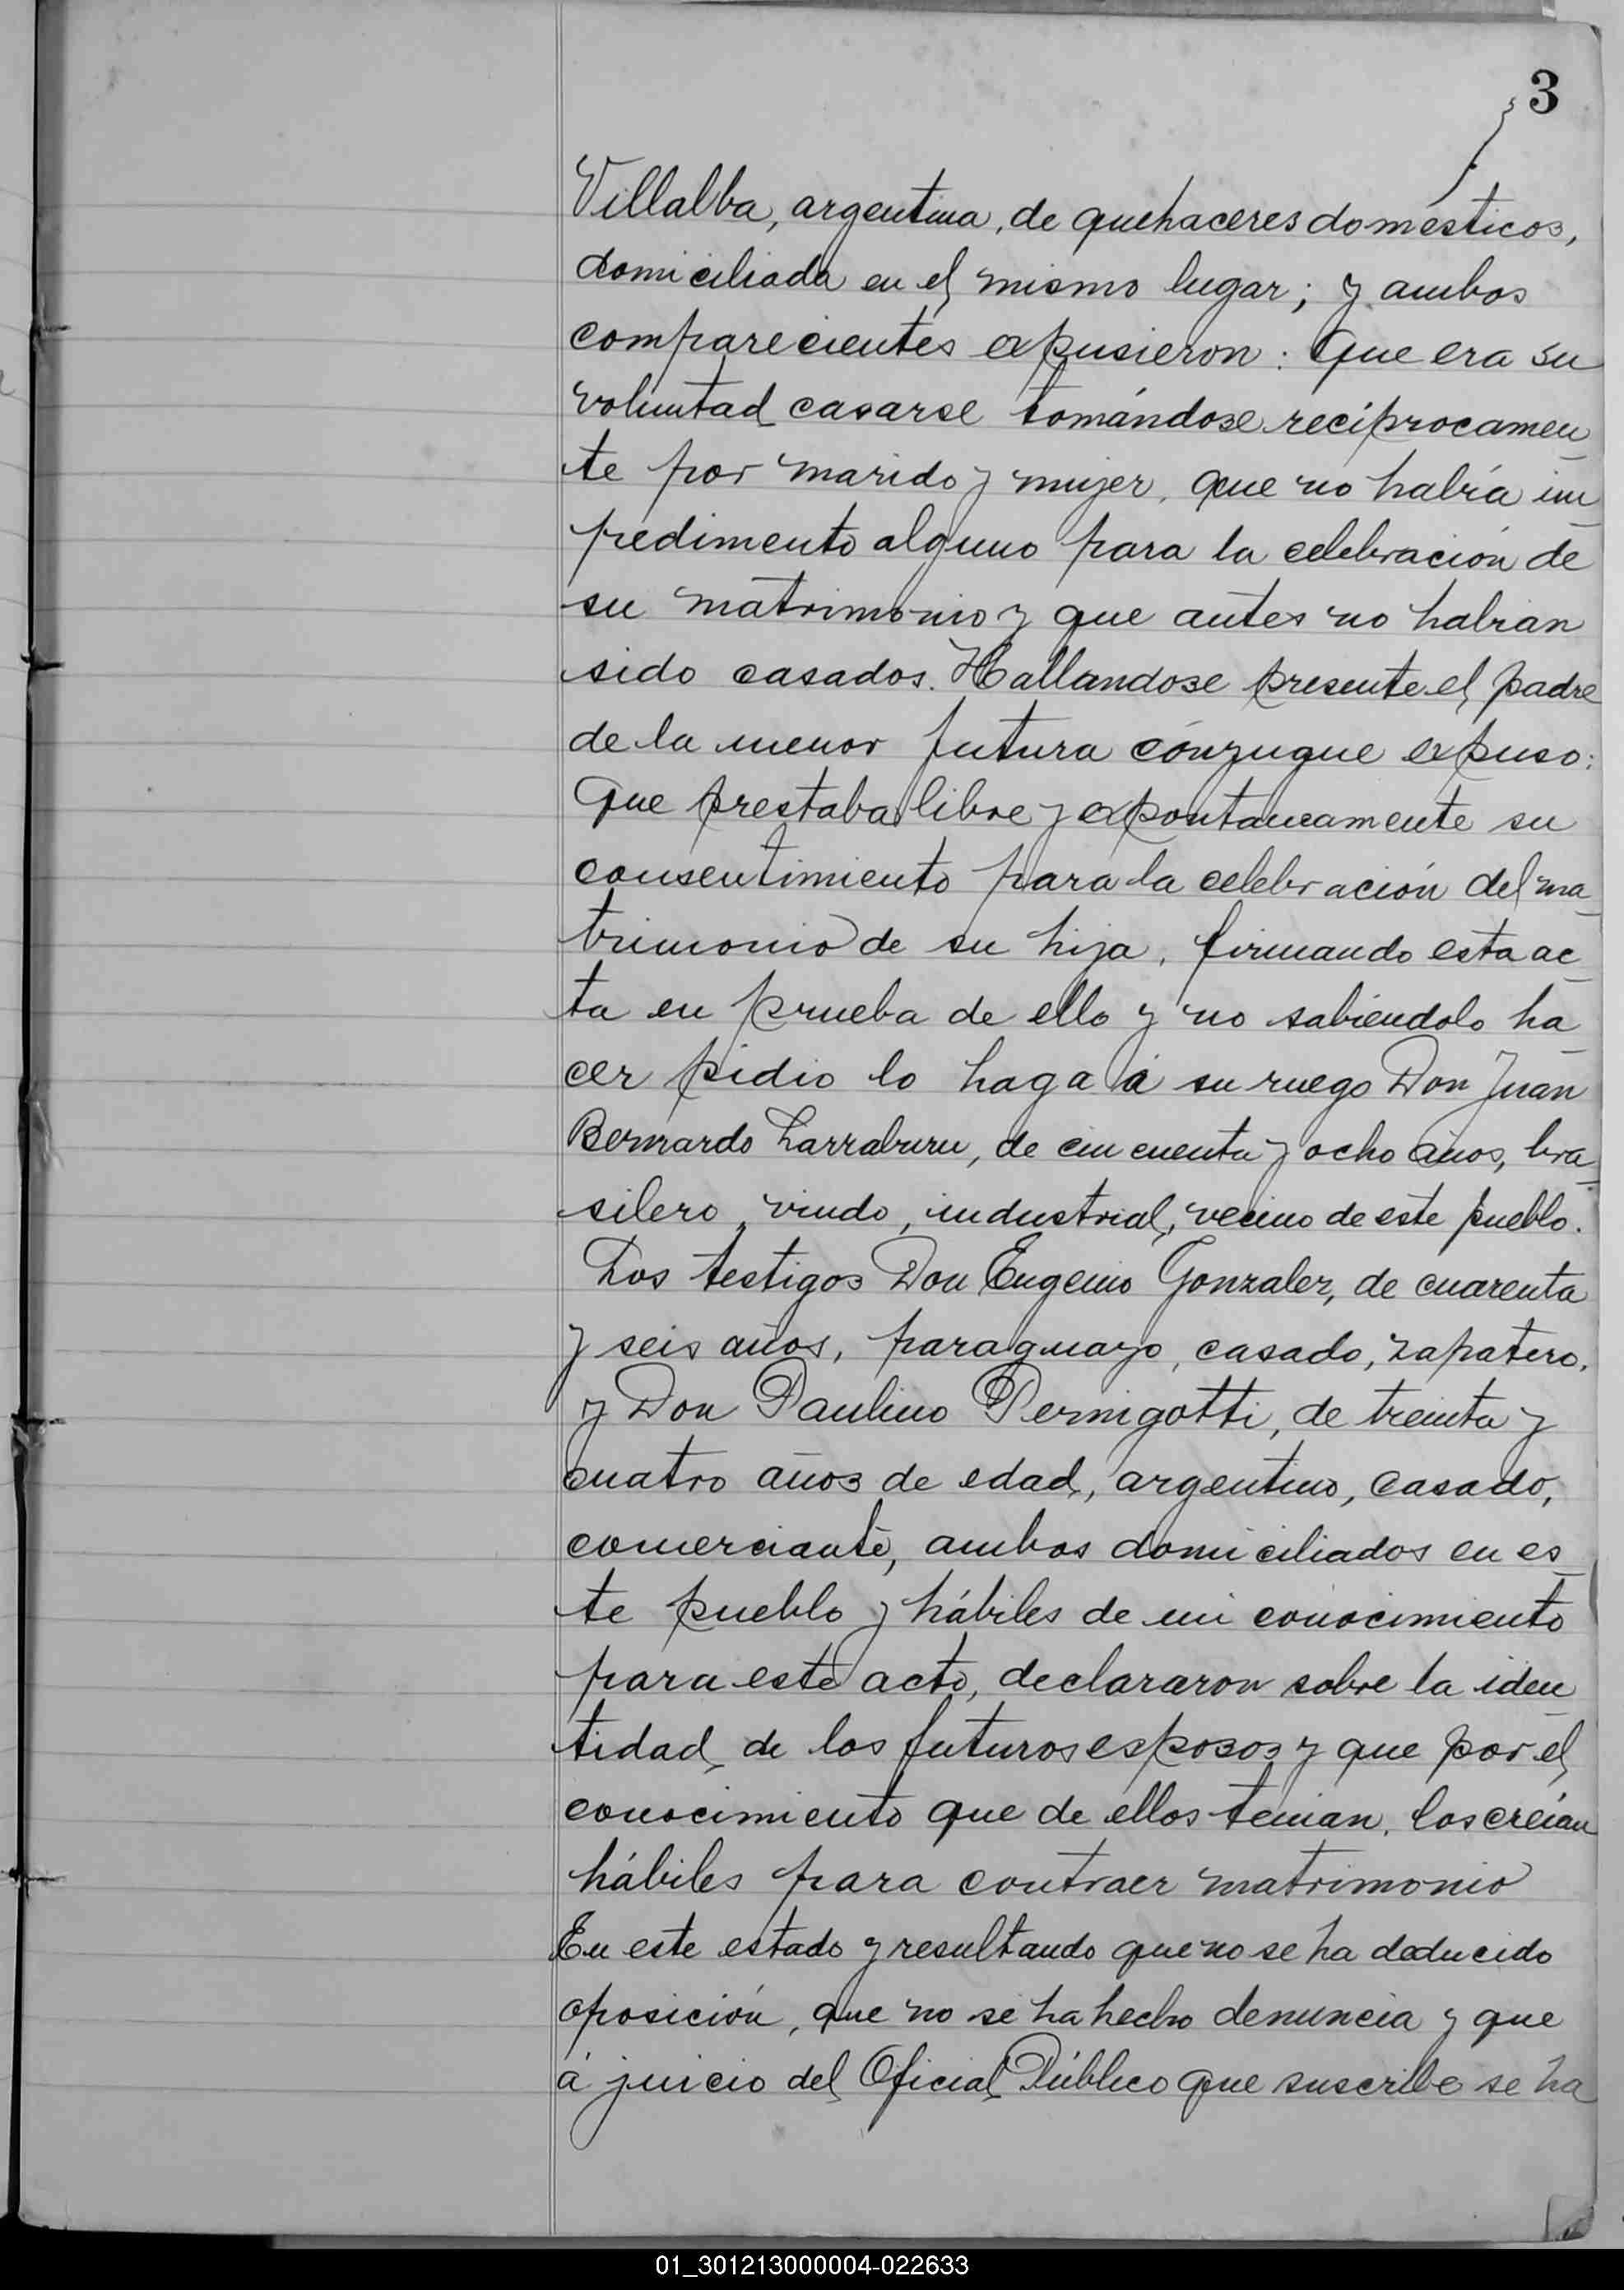 3
Villalba, argentina, de quehaceres domésticos,
domiciliada en el mismo lugar; y ambos
comparecientes expusieron: Que era su
voluntad casarse tomándose reciprocamen
te por marido y mujer, que no había im
pedimento alguno para la celebración de
su matrimonio y que antes no habian
sido casados. Hallandose presente el padre
de la menor futura cónyugue expuso:
Que prestaba libre y expontaneamente su
consentimiento para la celebración del ma
trimonio de su hija, firmando esta ac
ta en prueba de ello y no sabiéndolo ha
cer pidio lo haga á su ruego Don Juan
Bernardo Larraburu, de cincuenta y ocho años, bra
silero, viudo, industrial, vecino de este pueblo.
Los testigos Don Eugenio Gonzalez, de cuarenta
y seis años, paraguayo, casado, zapatero,
y Don Paulino Pernigotti, de treinta y
cuatro años de edad, argentino, casado,
comerciante, ambos domiciliados en es
te pueblo y hábiles de mi conocimiento
para este acto, declararon sobre la iden
tidad de los futuros esposos y que por el
conocimiento que de ellos tenian, los creían
hábiles para contraer matrimonio
En este estado y resultando que no se ha deducido
oposición, que no se ha hecho denuncia y que
á juicio del Oficial Público que suscribe se ha
01_301213000004-022633